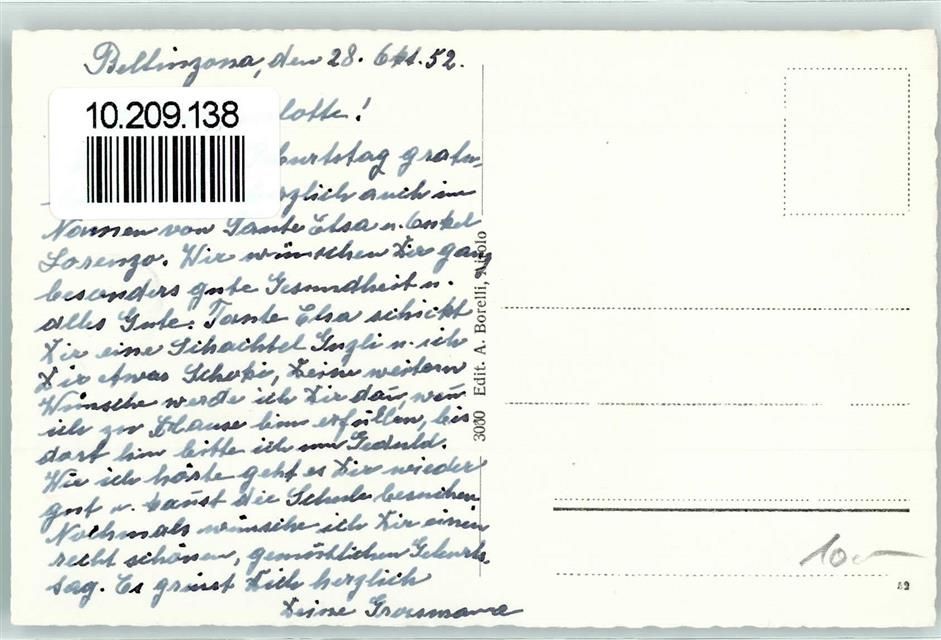 Bellinzona, den 28. Okt. 52.
10.209.138
lotte!
burtstag gratu-
rzlich auch im
Namen von Tante Elsa u. Onkel
Lorenzo. Wir wünschen Dir ganz
besonders gute Gesundheit u.
alles Gute. Tante Elsa schickt
Dir eine Schachtel u. ich
Dir etwas Schoki, Deine weitern
Wünsche werde ich Dir dan, wen
ich zu Hause bin erfüllen, bis
dort hin bitte ich um Geduld.
Wie ich hörte geht es Dir wieder
gut u. kanst die Schule besuchen
Nochmals wünsche ich Dir einen
recht schönen, gemütlichen Geburts
tag. Es grüsst Dich herzlich
Deine Grosmama
3000 Edit. A. Borelli, Airolo
10.-
52